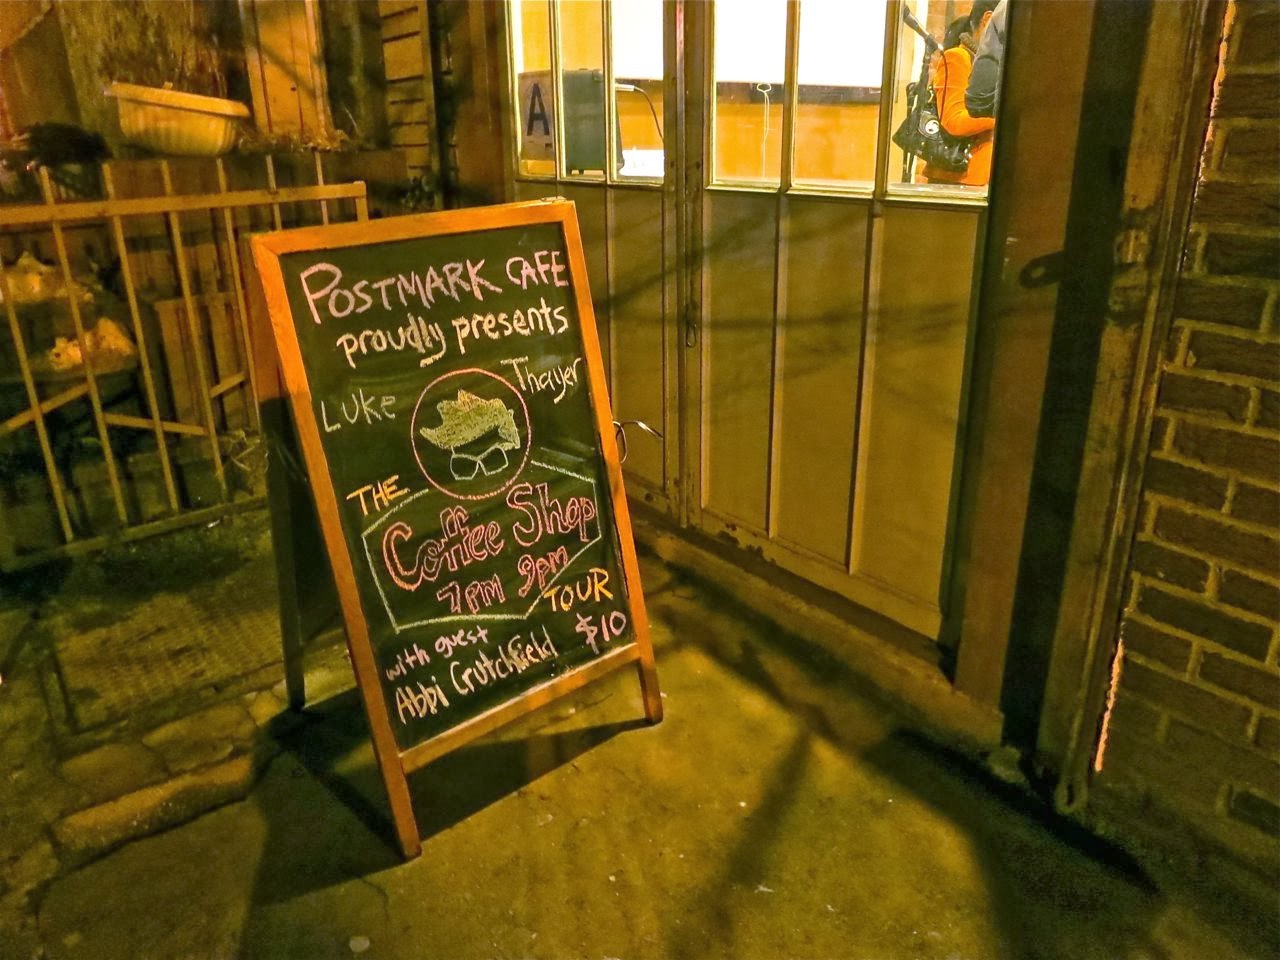 A
POSTMARK CAFE
proudly presents
LUKE Thayer
THE
Coffee Shop
7PM 9pm
TOUR
with guest $10
Abbi Crutchfield